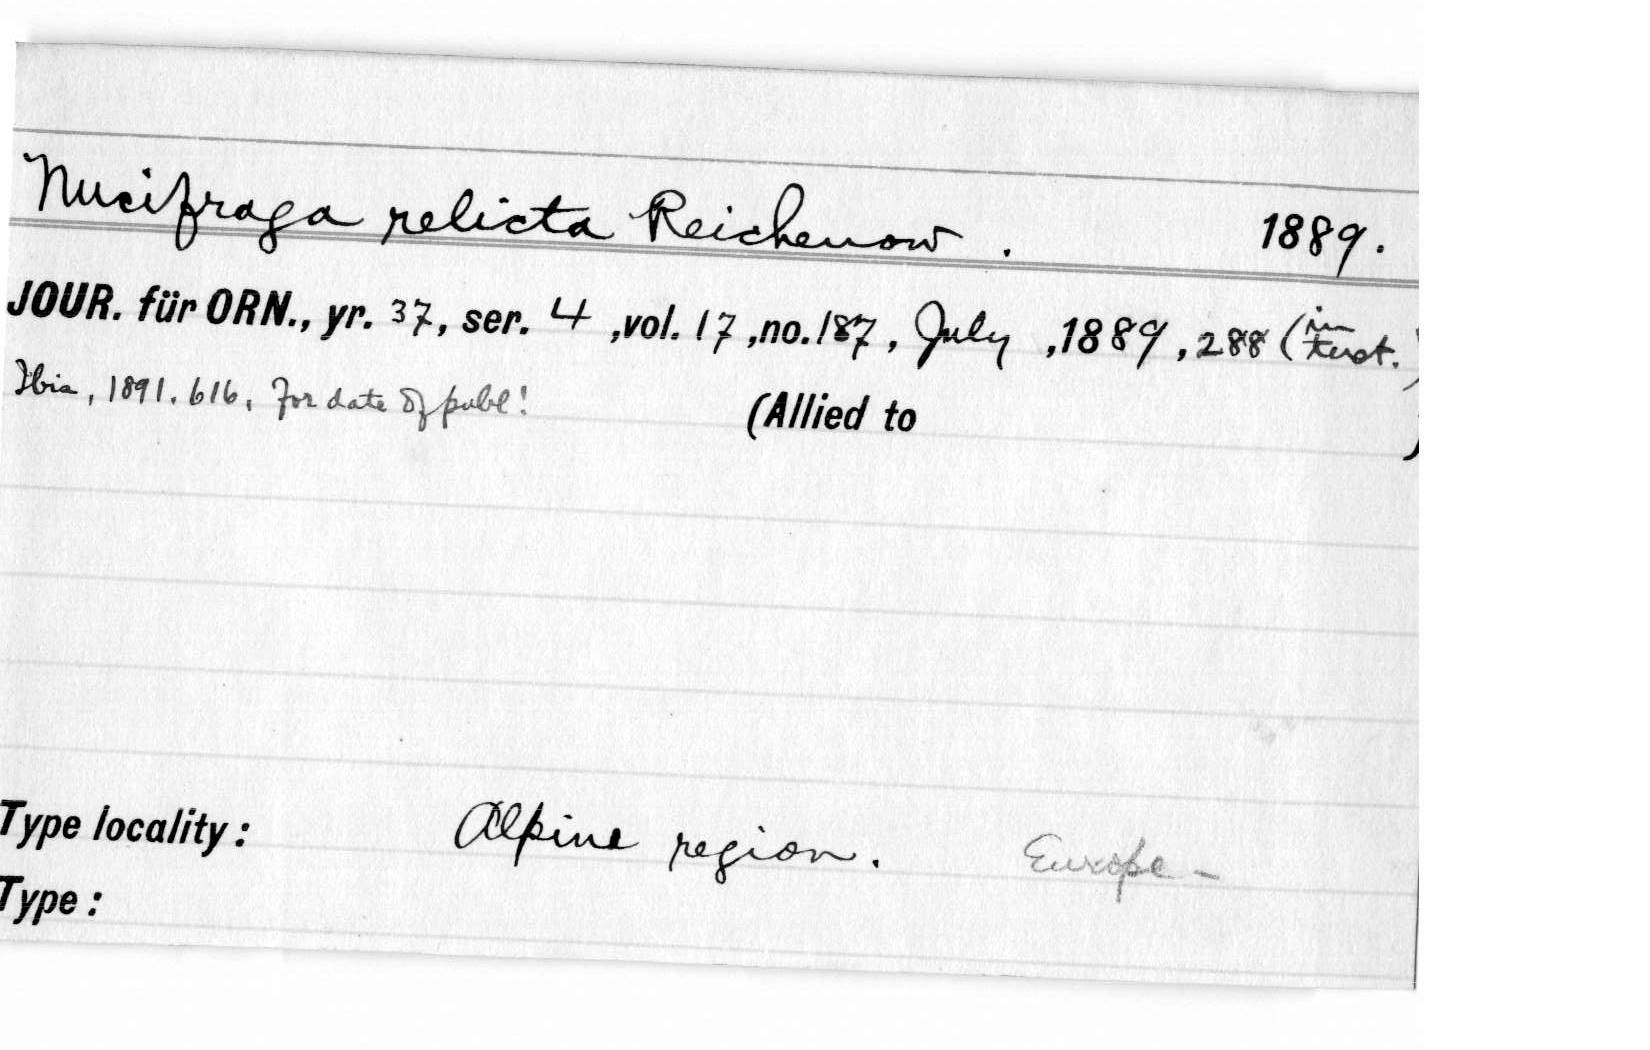 Nucifraga relicta Reichenow . 1889.
JOUR. für ORN., yr. 37, ser. 4 ,vol. 17 ,no. 187 , July ,1889 , 288 (in text.)
Ibis, 1891. 616, for date of publ!
(Allied to )
Type locality: Alpine region. Europe -
Type: